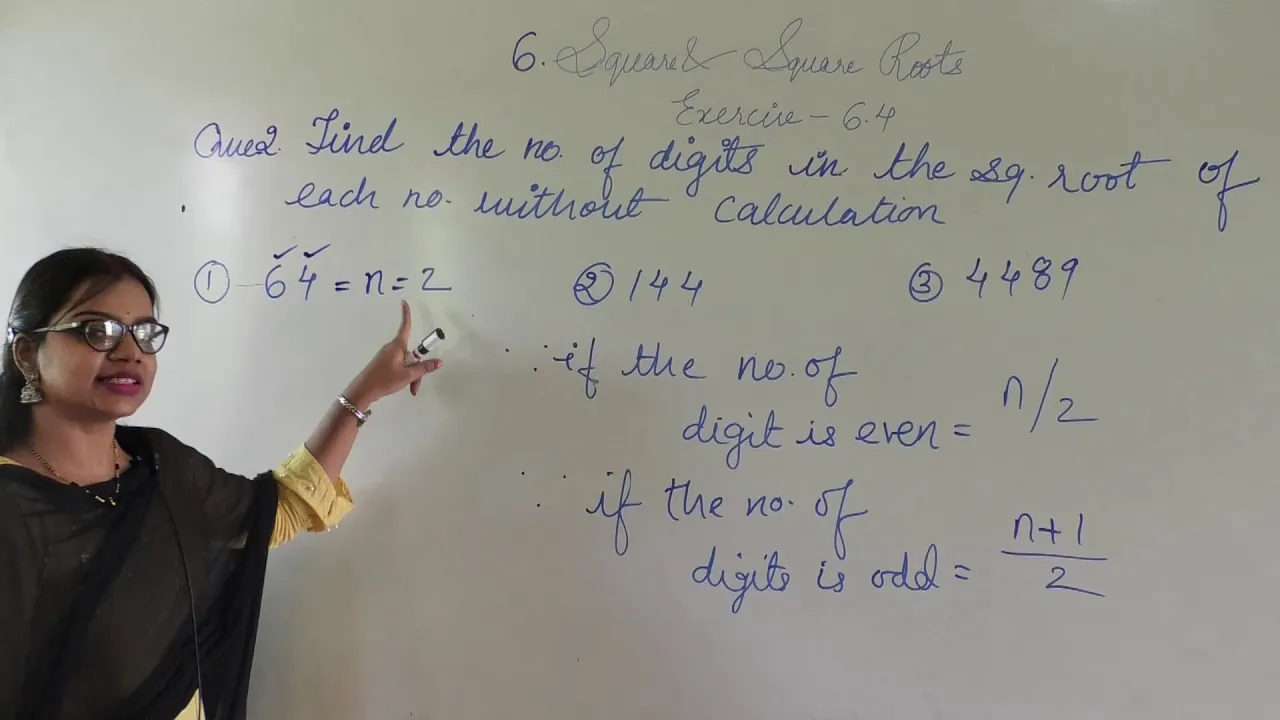 6. Square & Square Roots
Exercise - 6.4
Que2. Find the no. of digits in the sq. root of
each no. without calculation
① 64 = n = 2 ② 144 ③ 4489
∵ if the no. of
digit is even = n/2
∵ if the no. of
digits is odd = n+1
2